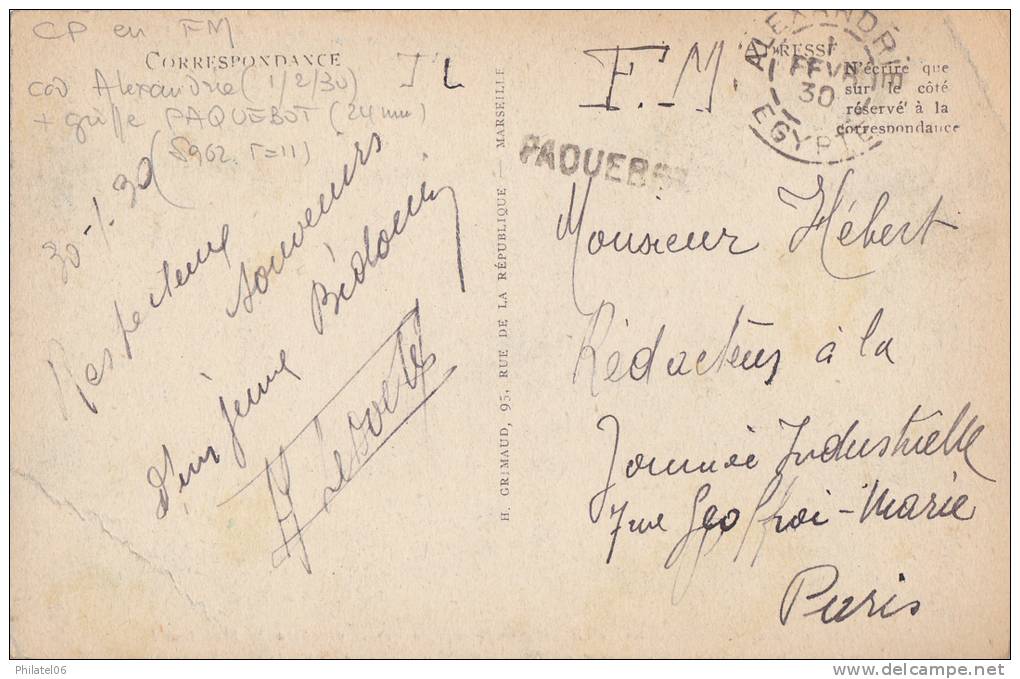 CP en FM
CORRESPONDANCE
cad Alexandrie (1/2/30)
+ griffe PAQUEBOT (24 mm)
(S962. T=11)
TL
30-1-30
Respectueux
souvenirs
d'un jeune Bidonin
H. GRIMAUD, 95, RUE DE LA RÉPUBLIQUE — MARSEILLE
F.M.
ADRESSE
N'écrire que
sur le côté
réservé à la
correspondance
ALEXANDRIE
1
FEVR
30
EGYPTE
PAQUEBOT
Monsieur Hébert
Rédacteur à la
Journée Industrielle
7 rue Geoffroi-Marie
Paris
Philatel06
www.delcampe.net